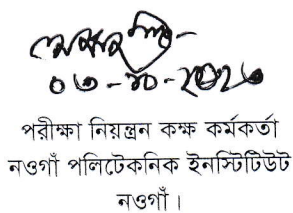 ০৩-১০-২০২৩
পরীক্ষা নিয়ন্ত্রন কক্ষ কর্মকর্তা
নওগাঁ পলিটেকনিক ইনস্টিটিউট
নওগাঁ।